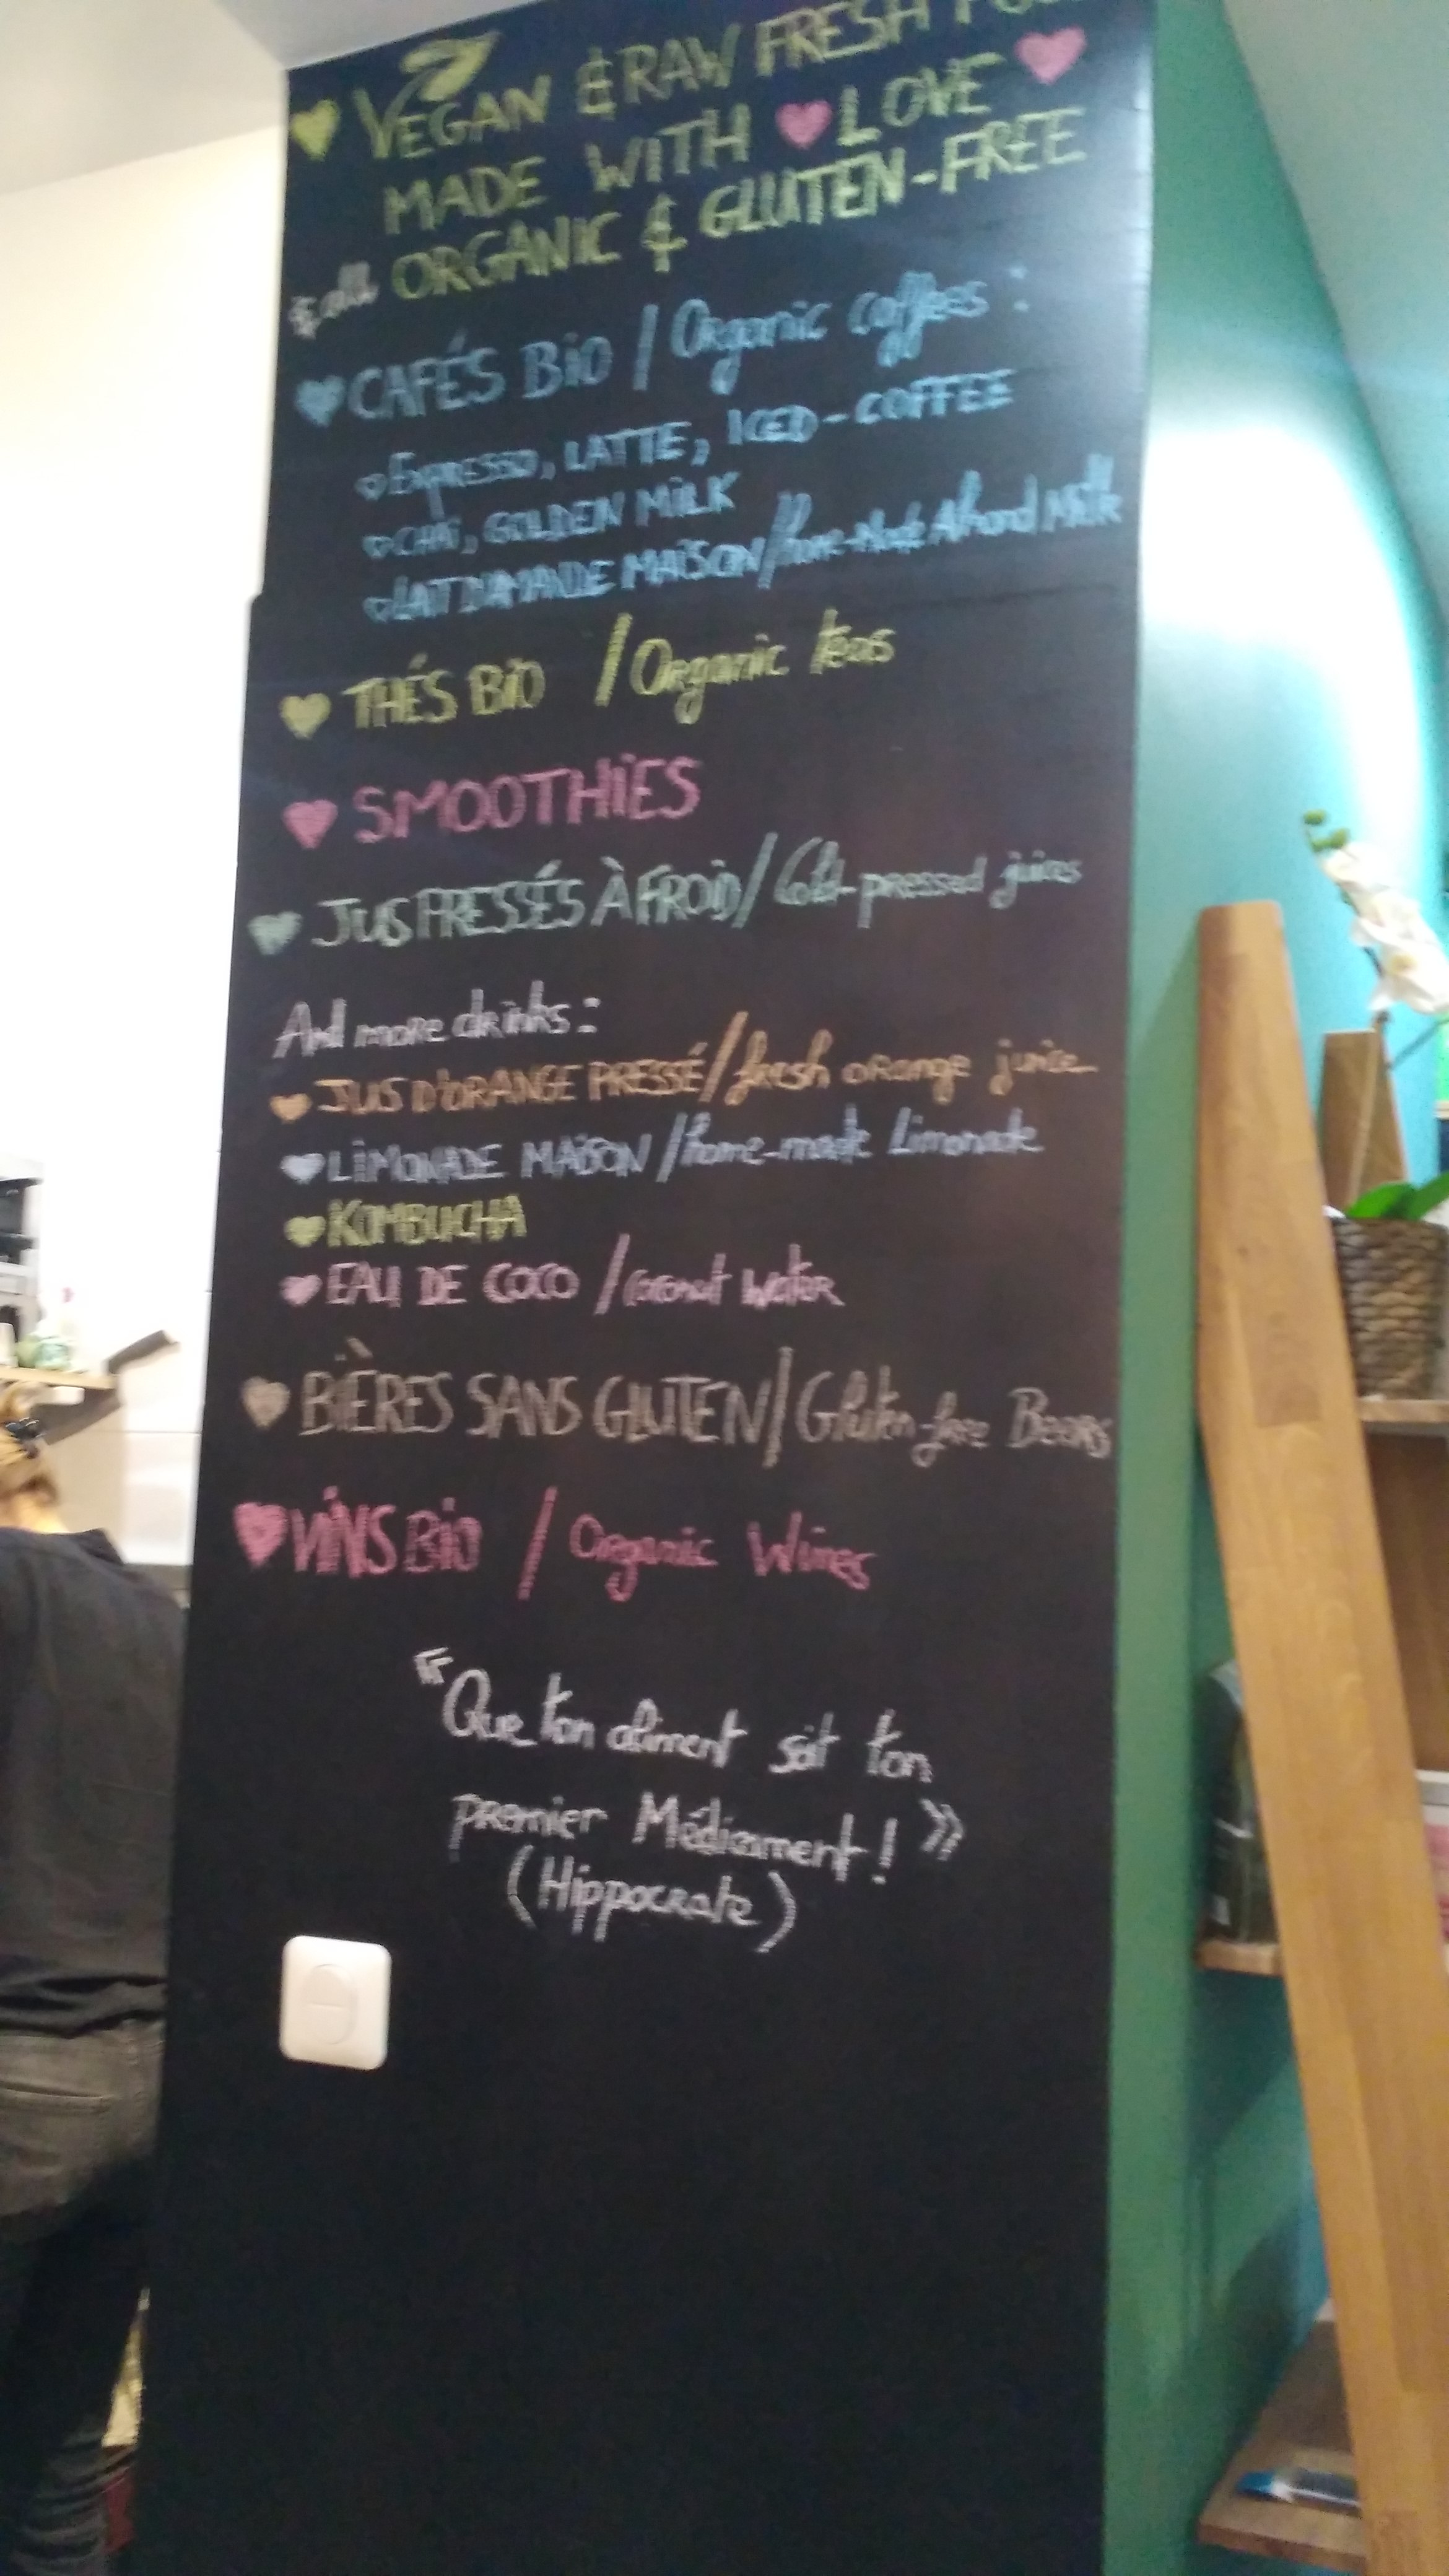 VEGAN & RAW FRESH
MADE WITH LOVE
& all ORGANIC & GLUTEN-FREE
CAFÉS BIO / Organic coffees :
EXPRESSO, LATTE, ICED-COFFEE
CHAÏ, GOLDEN MILK
LAIT D'AMANDE MAISON/Home-Made Almond Milk
THÉS BIO / Organic teas
SMOOTHIES
JUS PRESSÉS À FROID/Cold-pressed juices
And more drinks :
JUS D'ORANGE PRESSÉ/fresh orange juice
LIMONADE MAISON/home-made Limonade
KOMBUCHA
EAU DE COCO /coconut water
BIÈRES SANS GLUTEN/Gluten-free Beers
VINS BIO / Organic Wines
"Que ton aliment soit ton
premier Médicament! »
(Hippocrate)